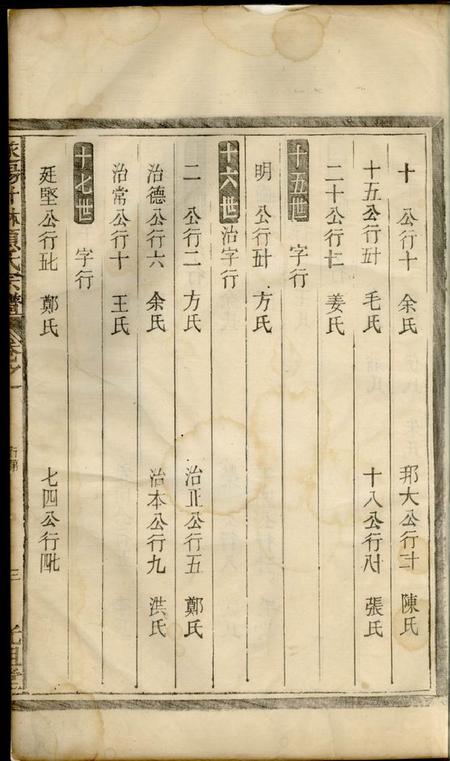 十　公行十　余氏　邦大公行二十　陳氏
十五公行五十　毛氏　十八公行八十　張氏
二十公行二十　姜氏
十五世　字行
明　公行五十　方氏
十六世　治字行
二　公行二　方氏　治正公行五　鄭氏
治德公行六　余氏　治本公行九　洪氏
治常公行十　王氏
十七世　字行
廷堅公行　鄭氏　七四公行
氏宗譜　卷之一　行第　三